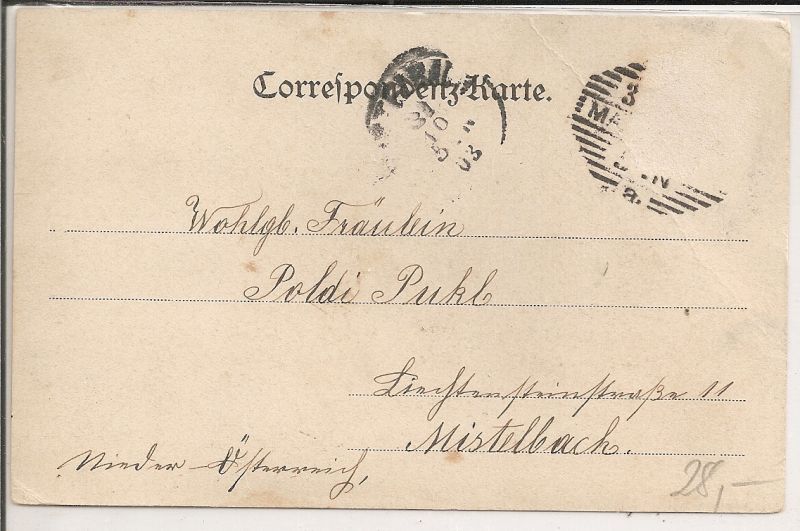 Correspondenz-Karte.
31
10
03
a.
Wohlgb. Fräulein
Poldi Pukl
Liechtensteinstraße 11
Mistelbach.
Nieder-Österreich,
28,-